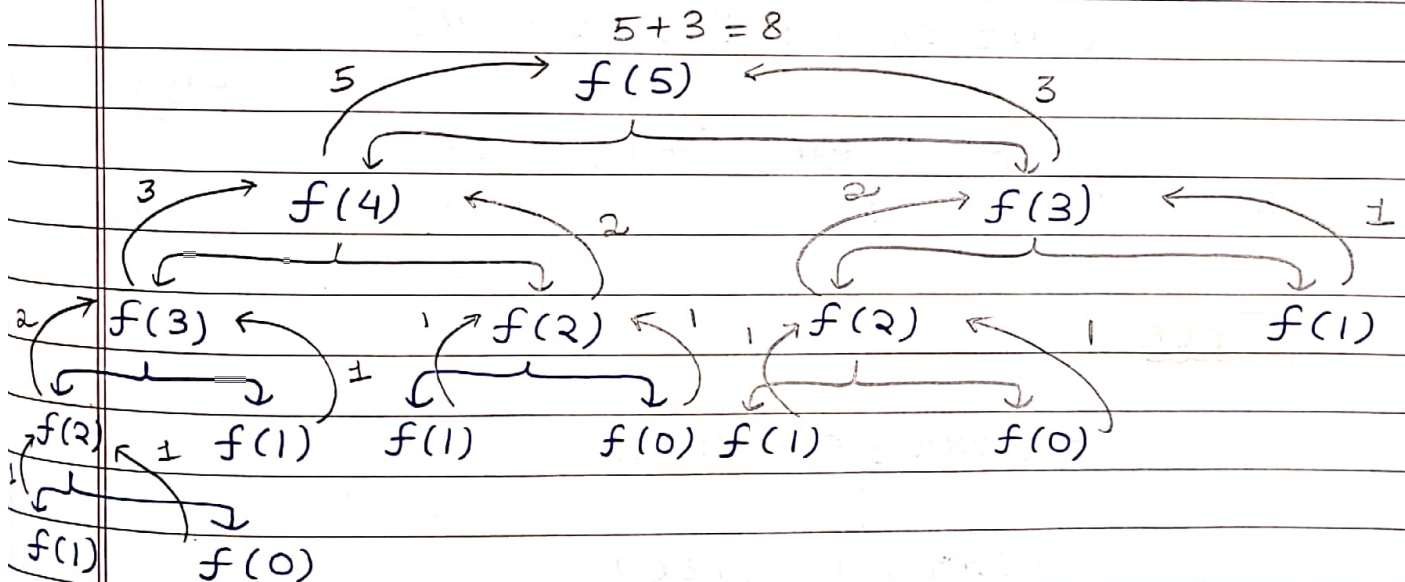 5 + 3 = 8
5 f(5) 3
3 f(4) 2 2 f(3) 1
2 f(3) 1 1 f(2) 1 1 f(2) 1 f(1)
f(2) 1 f(1) f(1) f(0) f(1) f(0)
1
f(1) f(0)